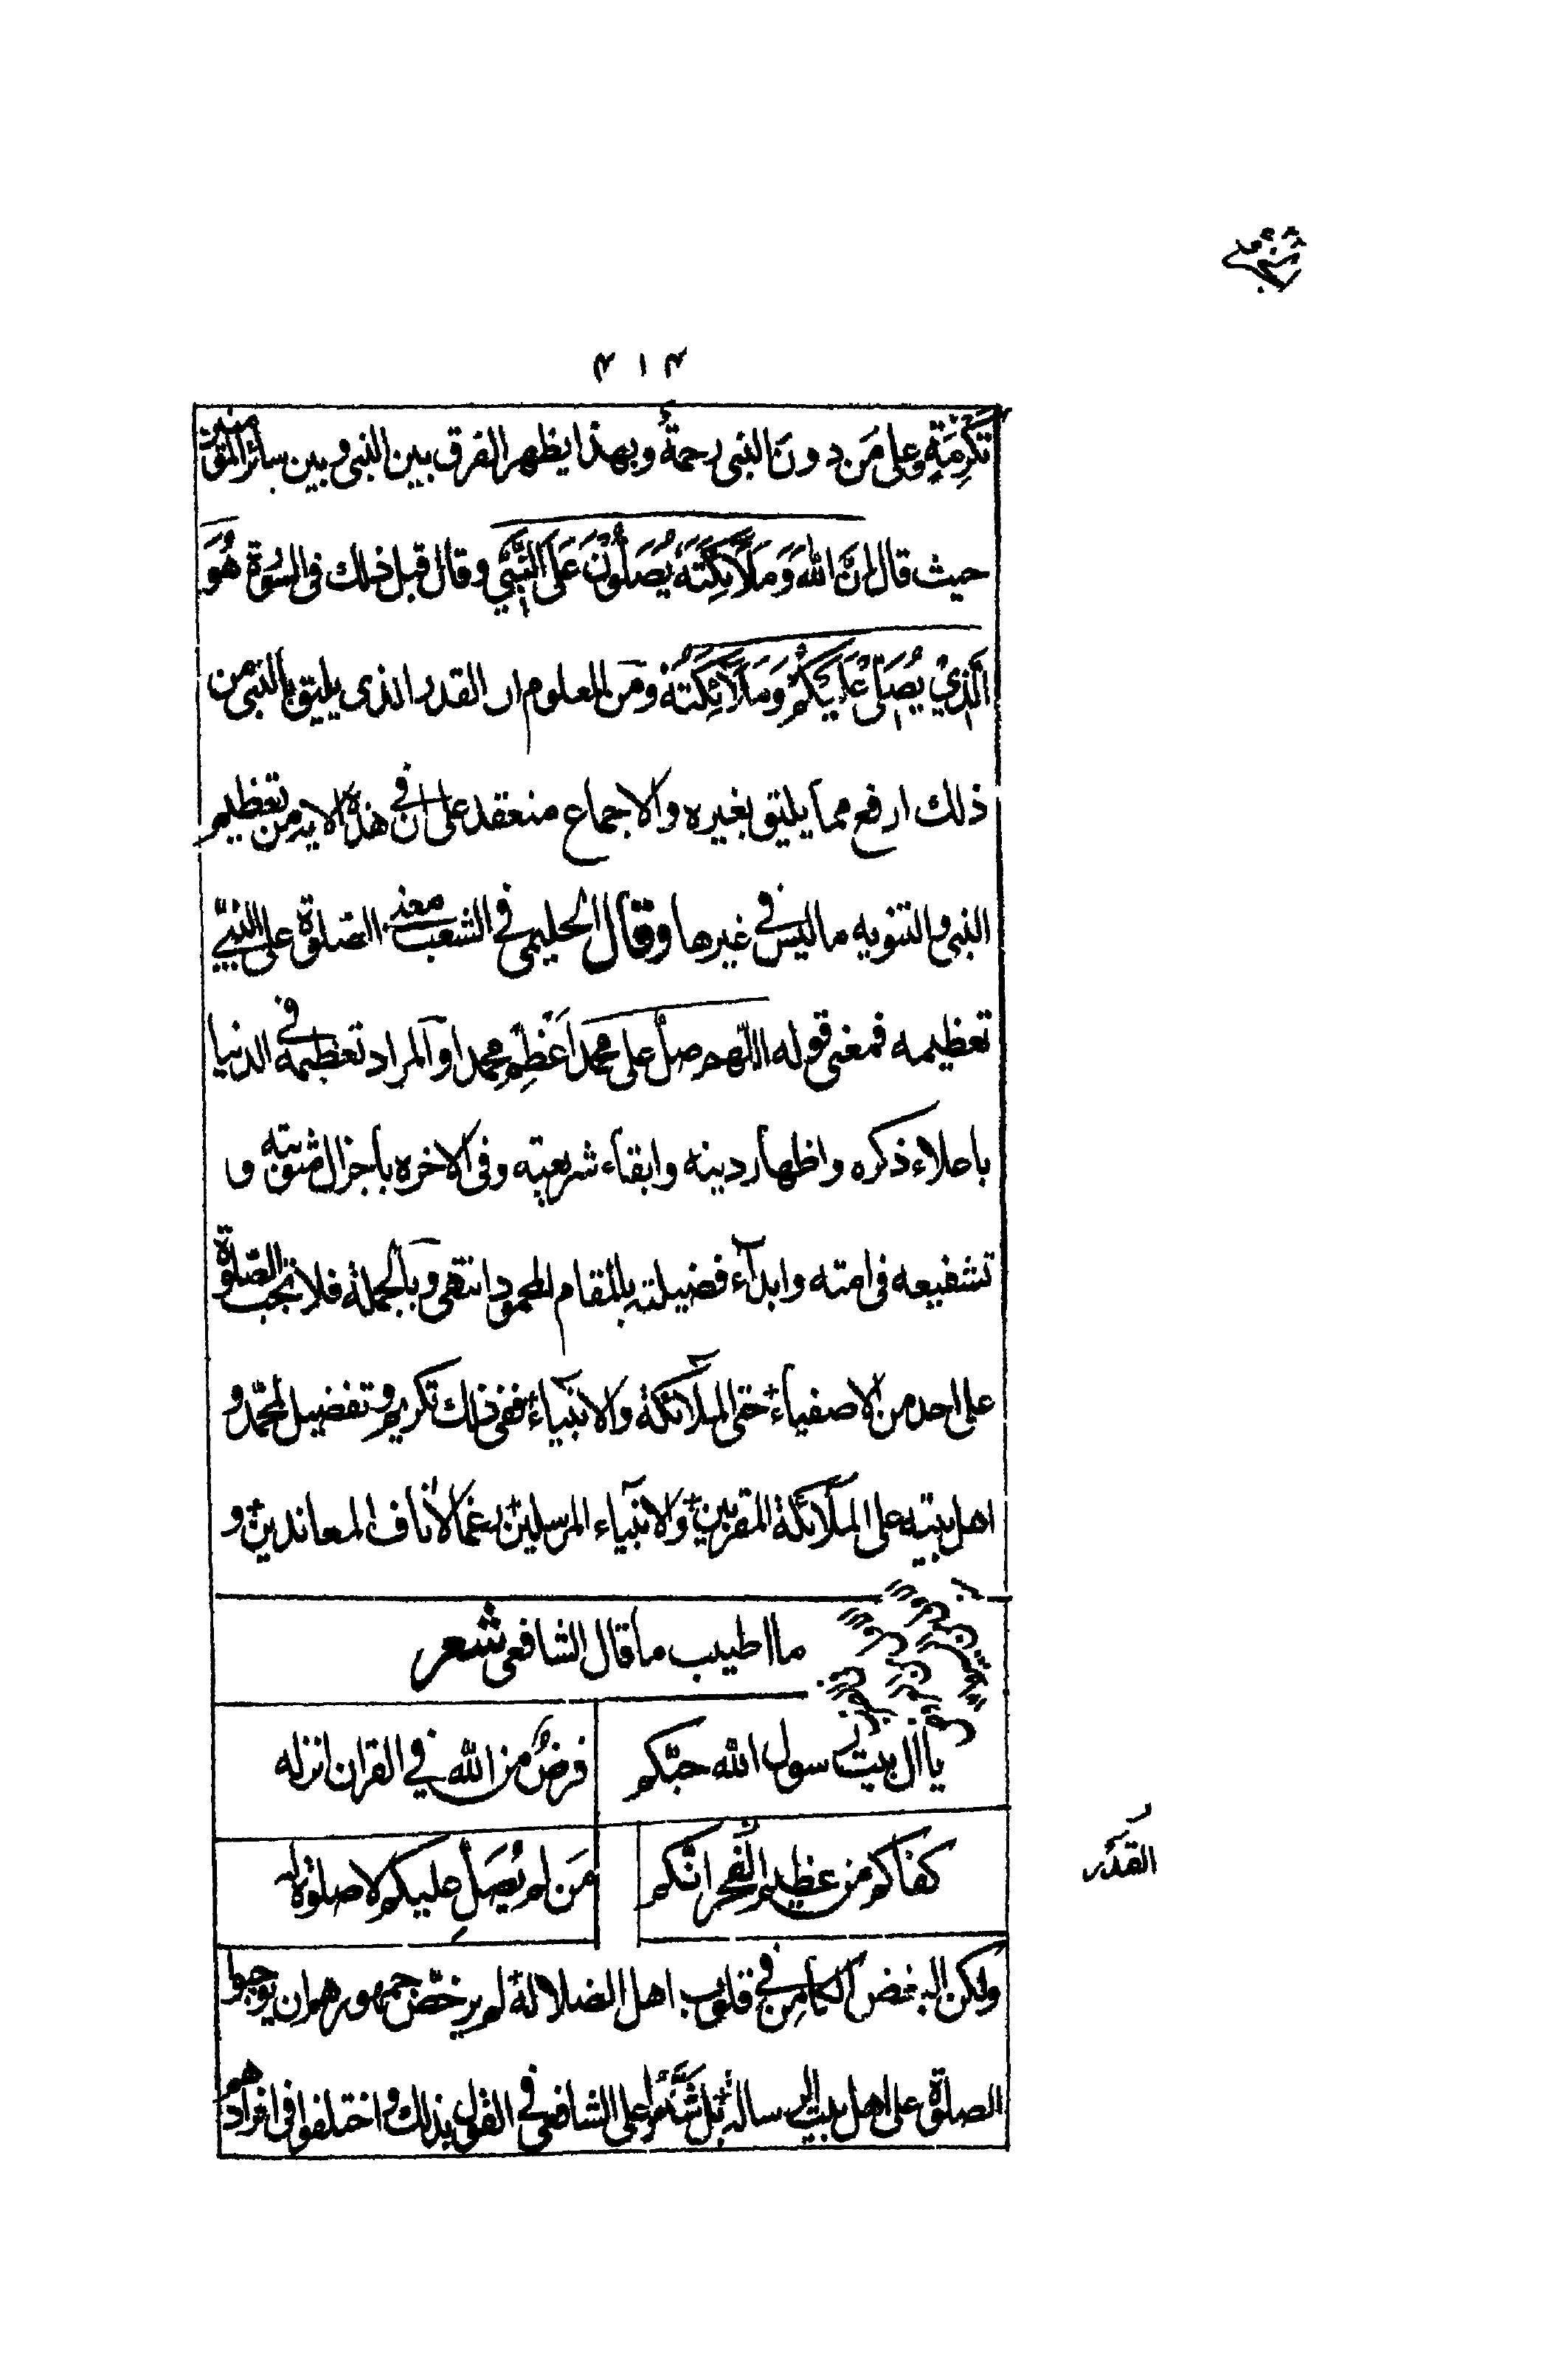 ٣١٣
تَكْرِمَةٍ وعلى مَن دونَ النبى رحمةٌ وبهذا يظهر الفرق بين النبى وبين سائر المؤمنين
حيث قال اِنَّ اللهَ وَمَلَآئِكَتَهُ يُصَلُّوْنَ عَلَى النَّبِيِّ وقال قبل ذلك فى السُورة هُوَ
الَّذِيْ يُصَلِّيْ عَلَيْكُمْ وَمَلَآئِكَتُهُ ومن المعلوم ان القدر الذى يليق بالنبى من
ذلك ارفع مما يليق بغيره والاجماع منعقد على ان فى هذه الاية من تعظيم
النبى والتنويه ما ليس فى غيرها وقال الحليمى فى الشعب معنى الصلوة على النبى
تعظيمه فمعنى قوله اللهم صل على محمد اَعْظِمْ محمدا والمراد تعظيمه فى الدنيا
باعلاء ذكره واظهار دينه وابقاء شريعته وفى الاخرة باجزال مثوبته و
تشفيعه فى امته وابدآء فضيلته بالمقام المحمود انتهى وبالجملة فلا تجب الصلوة
على احد من الاصفياء حتى الملآئكة والانبيآء ففى ذلك تكريم وتفضيل لمحمّد و
اهل بيته على الملآئكة المقربين والانبياء المرسلين رغما لآناف المعاندين و
ما اطيب ما قال الشافعى شعر
يا ال بيت رسول الله حبّكم
فرضٌ من الله فى القران انزله
كفاكم من عظيم الفخر انّكم
مَن لم يُصَلِّ عليكم لا صلوة له
القَدر
ولكن البغض الكامن فى قلوب اهل الضلالة لم يرخّص جمهورهم ان يوجبوا
الصلوة على اهل بيت الرسالة بل شَنَّعُوا على الشافعى فى القول بذلك واختلفوا فى افرادهم